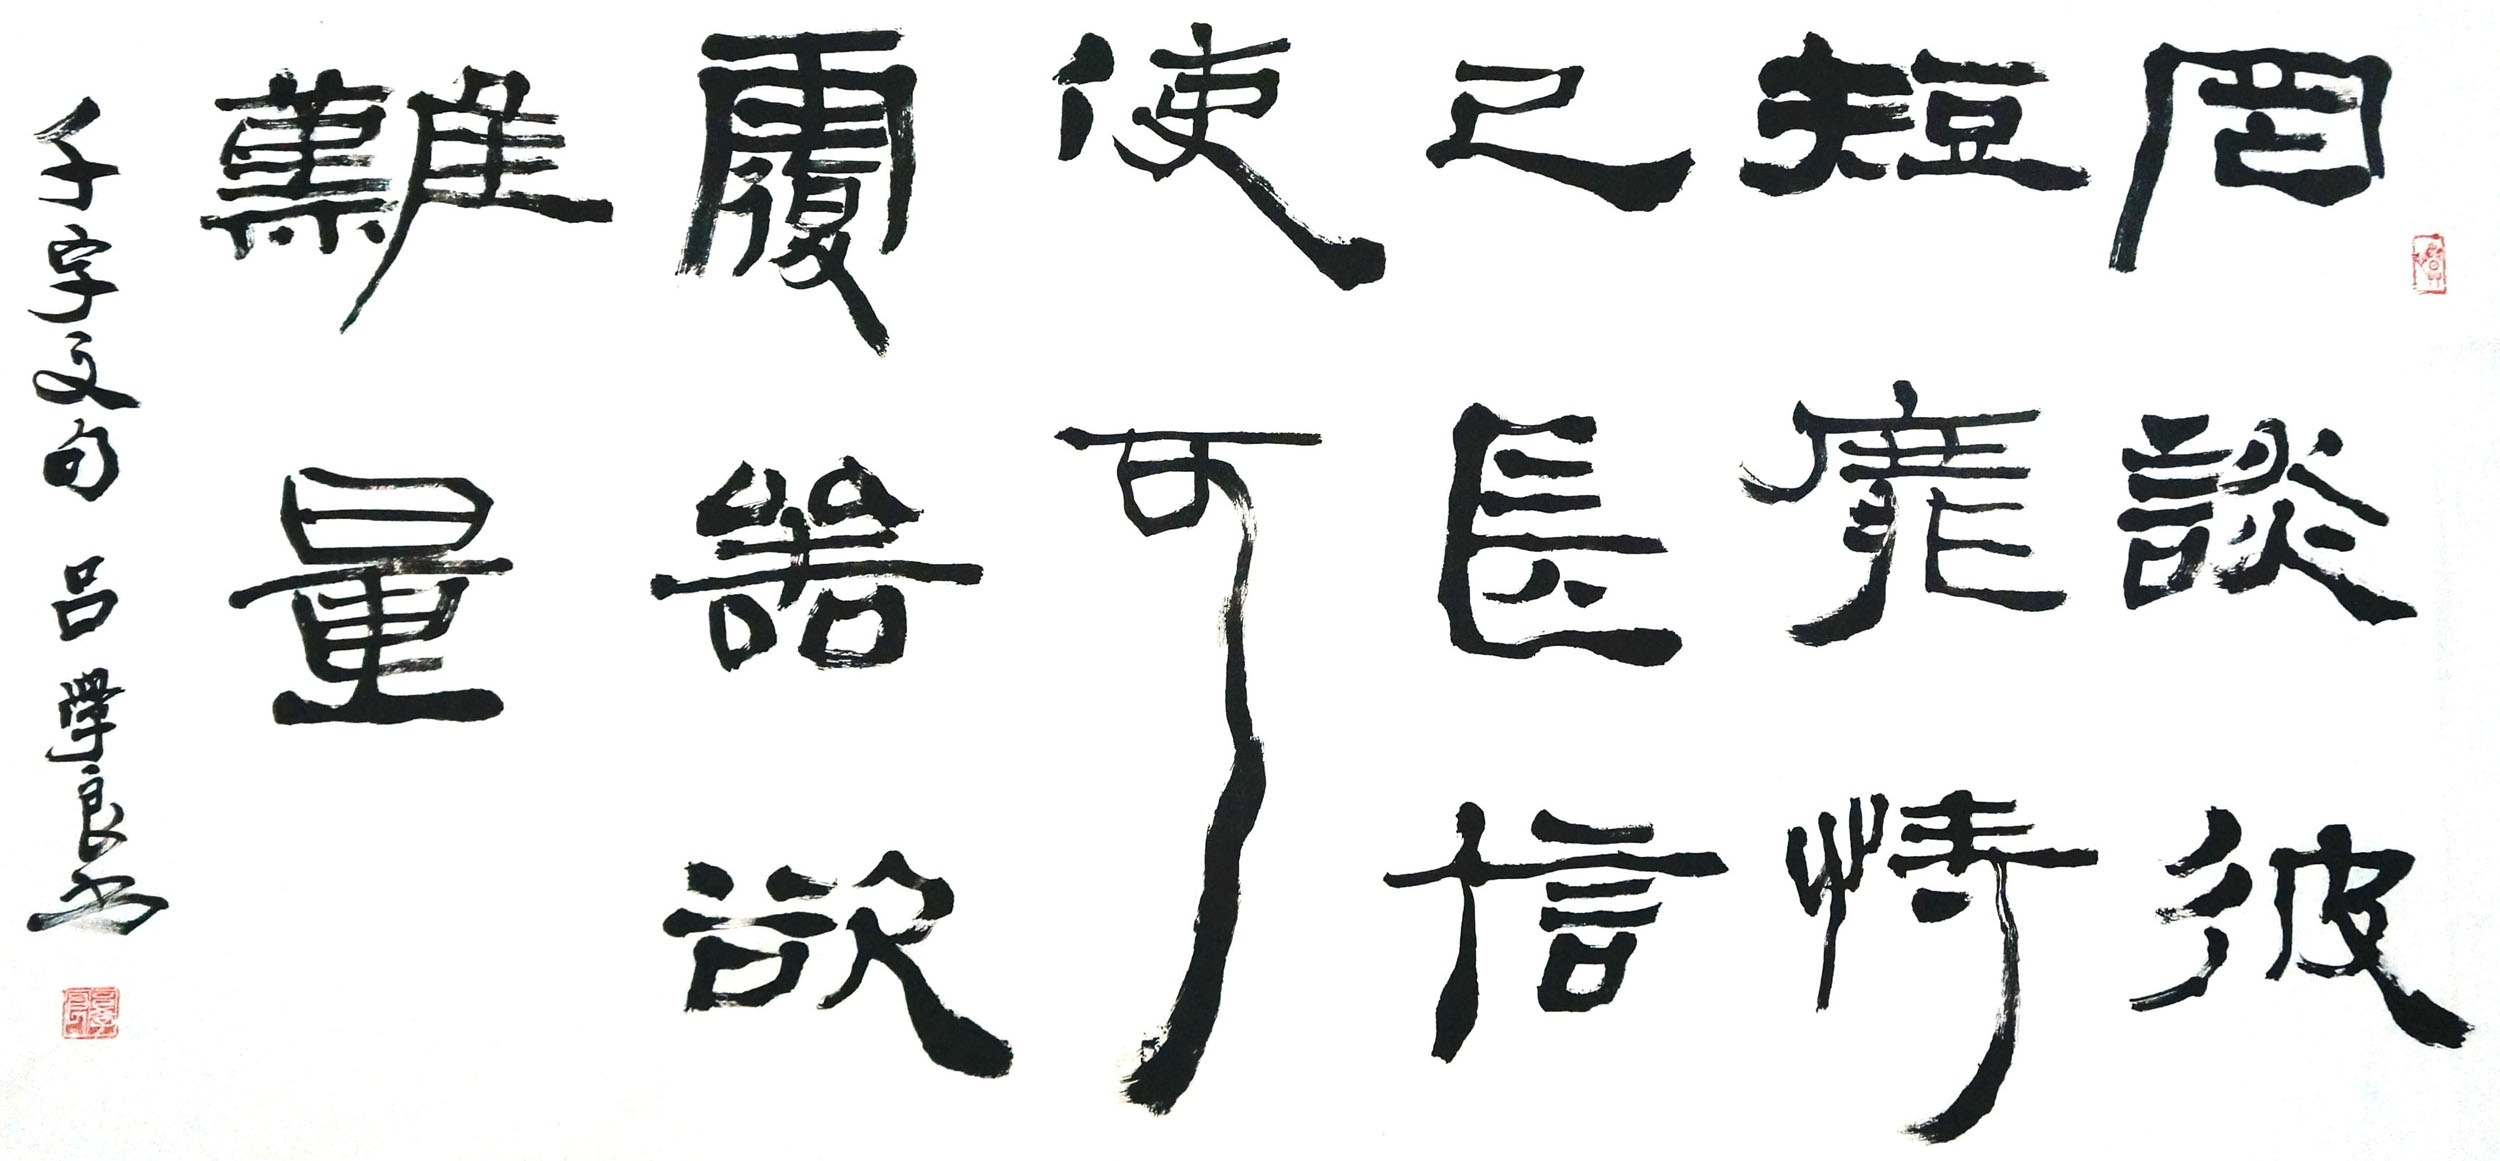 罔談彼
短靡恃
己長信
使可
覆器欲
難量
千字文句 吕學良书